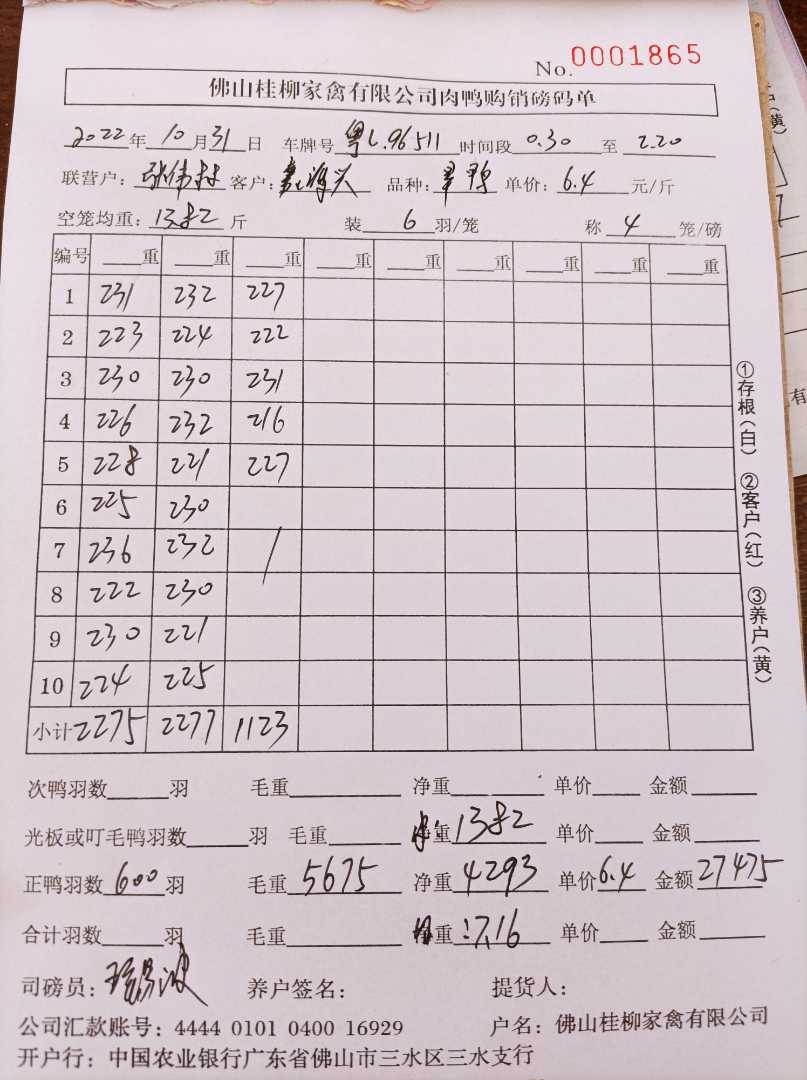 No. 0001865
佛山桂柳家禽有限公司肉鸭购销磅码单
2022年10月31日 车牌号 粤L.96511 时间段 0.30 至 2.20
联营户：张伟 客户： 兴 品种： 鸭 单价：6.4 元/斤
空笼均重：13.82 斤 装 6 羽/笼 称 4 笼/磅
编号 重 重 重 重 重 重 重 重 重
1 231 232 227
2 223 224 222
3 230 230 231
4 226 232 216
5 228 221 227
6 225 230
7 236 232 /
8 222 230
9 230 221
10 224 225
小计 2275 2277 1123
次鸭羽数 羽 毛重 净重 单价 金额
光板或叮毛鸭羽数 羽 毛重 重 1382 单价 金额
正鸭羽数 600 羽 毛重 5675 净重 4293 单价 6.4 金额 27475
合计羽数 羽 毛重 重 7.16 单价 金额
司磅员： 养户签名： 提货人：
公司汇款账号：4444 0101 0400 16929 户名：佛山桂柳家禽有限公司
开户行：中国农业银行广东省佛山市三水区三水支行
①存根(白) ②客户(红) ③养户(黄)
(黄)
有